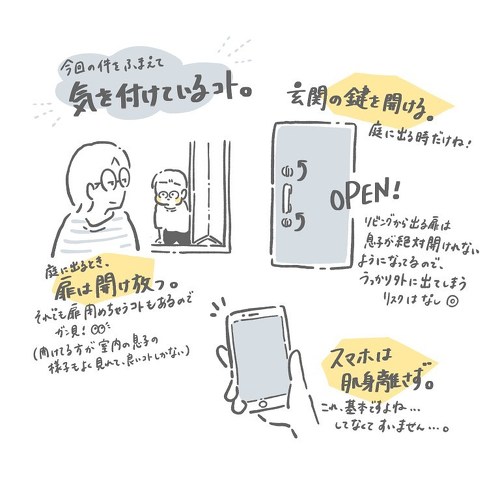 今回の件をふまえて
気を付けているコト。
玄関の鍵を開ける。
庭に出る時だけね!
OPEN!
リビングから出る扉は
息子が絶対開けれない
ようになってるので、
うっかり外に出てしまう
リスクはなし
庭に出るとき、
扉は開け放つ。
それでも扉閉めちゃうコトもあるので
ガン見!
(開けてる方が室内の息子の
様子もよく見れて、良いコトしかない)
スマホは
肌身離さず。
これ、基本ですよね…
してなくてすいません…。